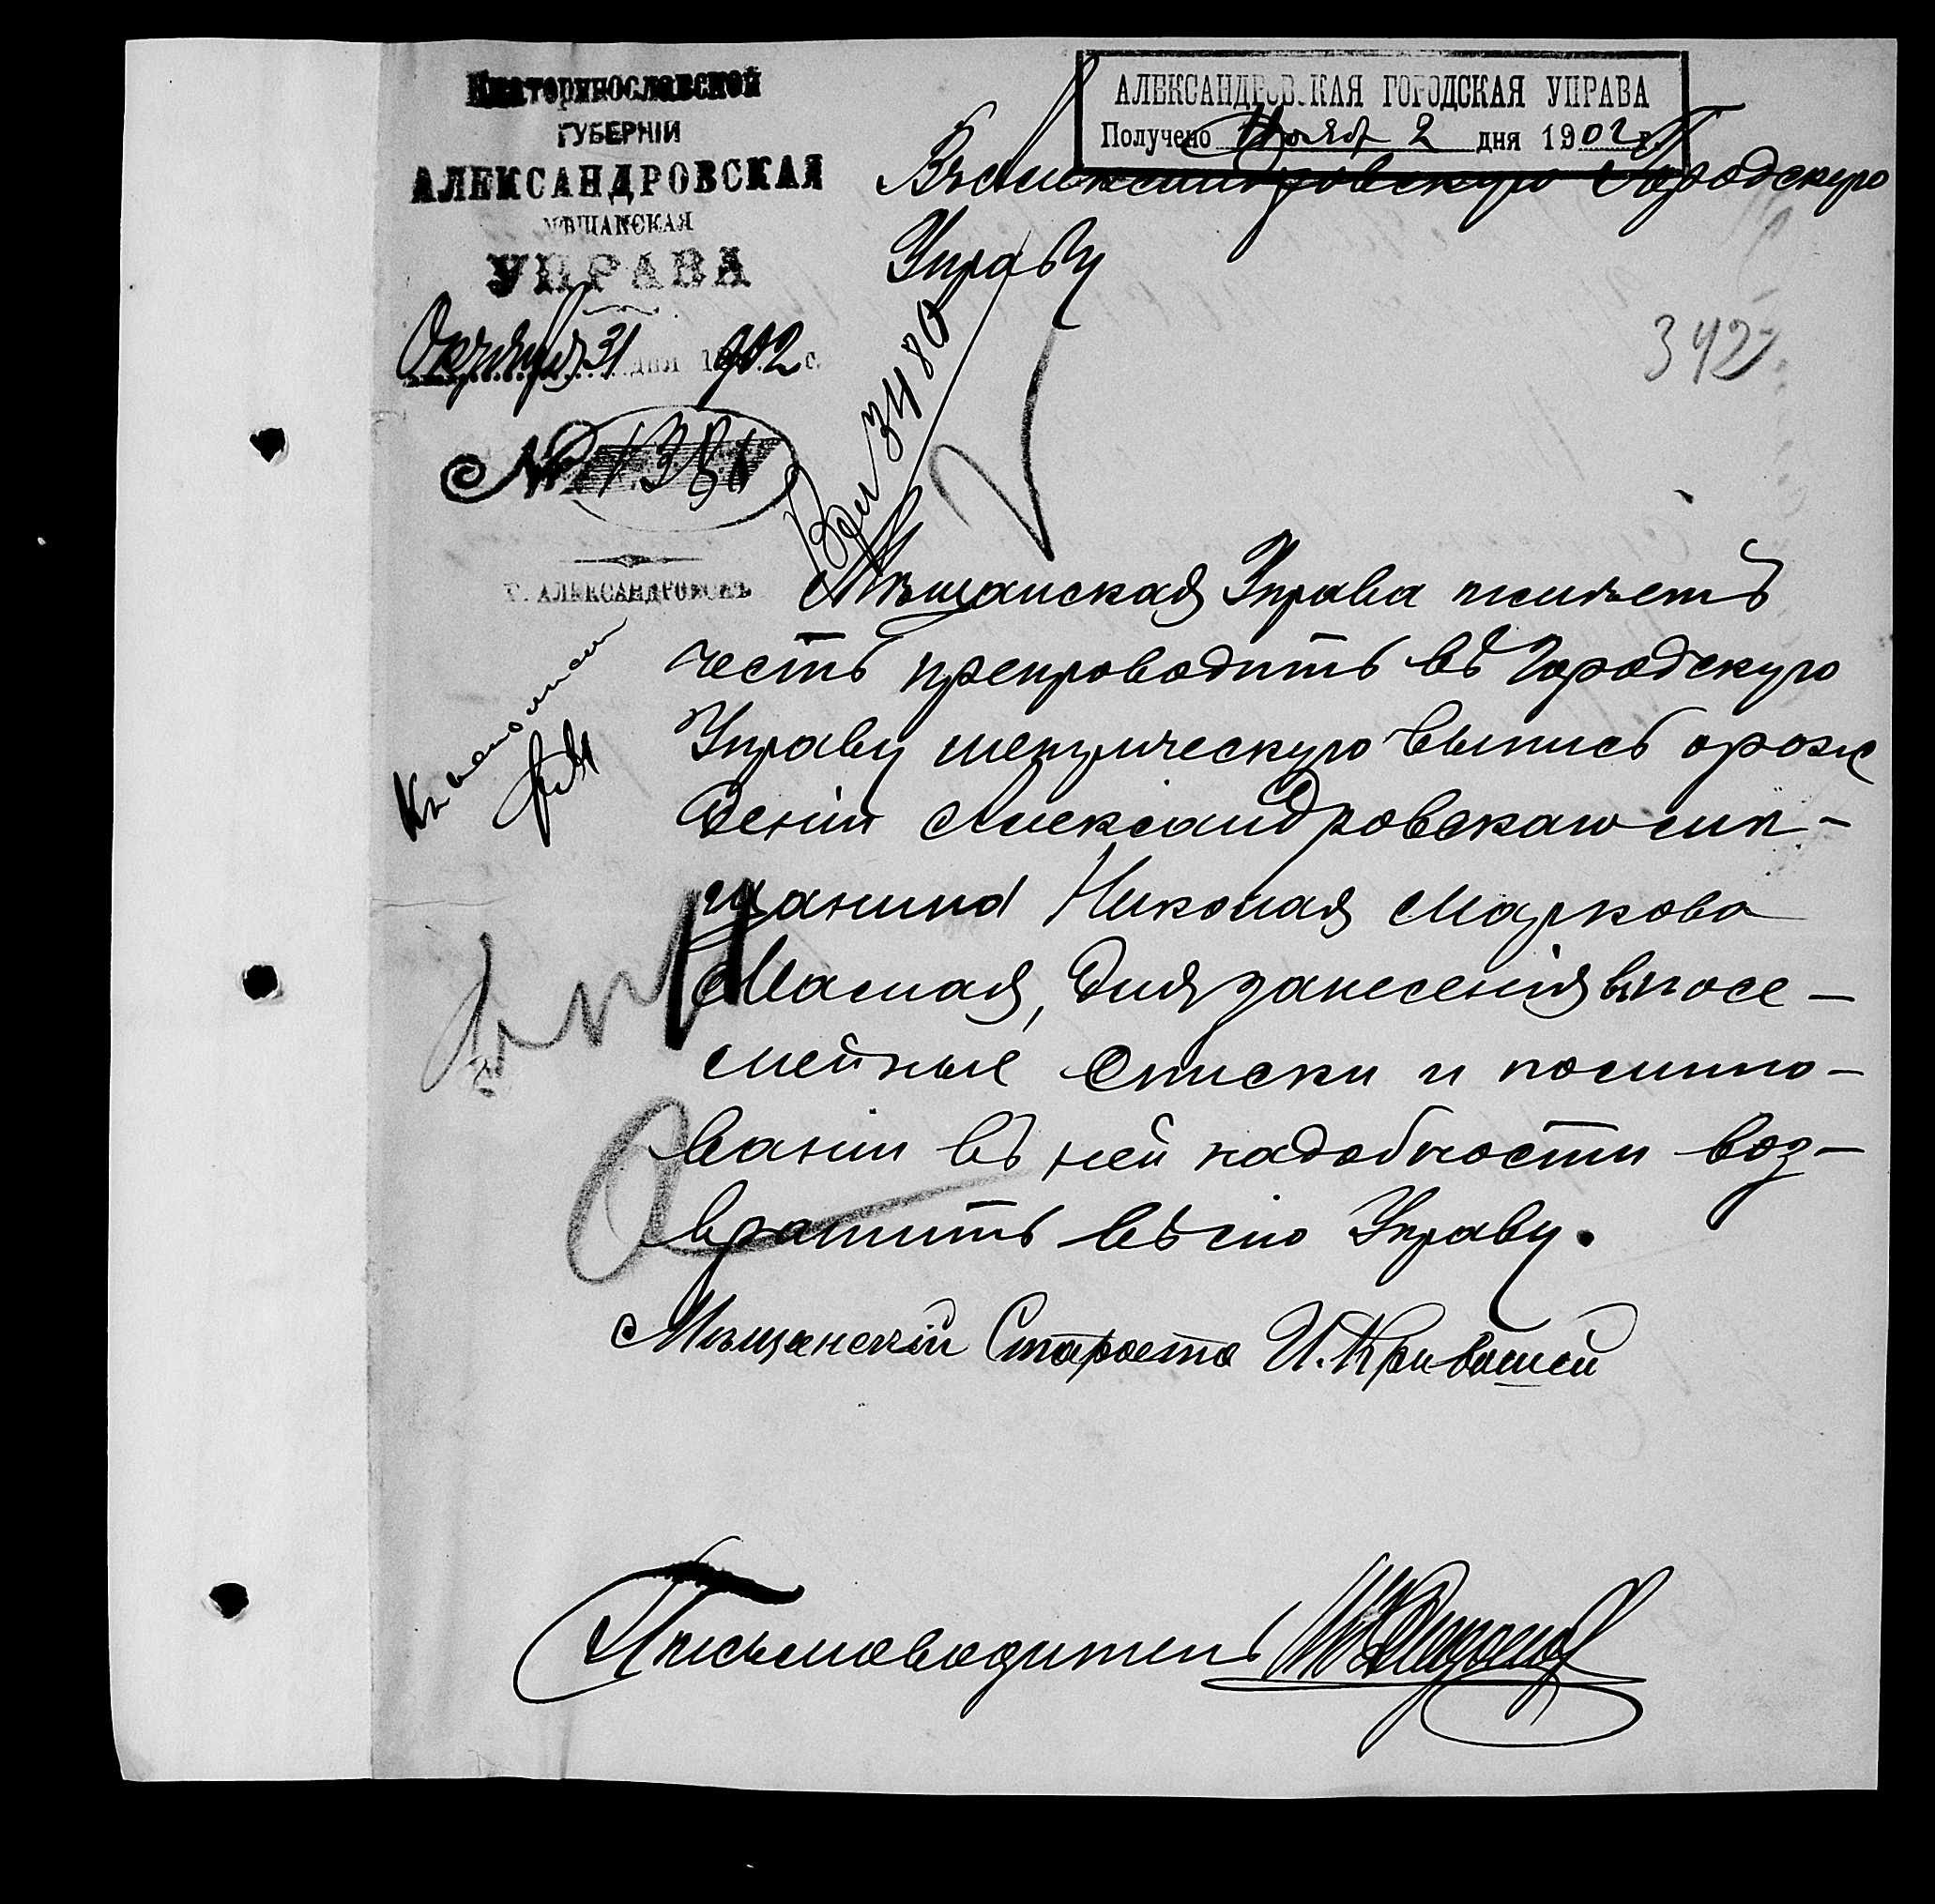 Екатеринославской
ГУБЕРНІИ
АЛЕКСАНДРОВСКАЯ
МѢЩАНСКАЯ
УПРАВА
Октября 31 дня 1902 г.
№ 1381
Г. АЛЕКСАНДРОВСКЪ
АЛЕКСАНДРОВСКАЯ ГОРОДСКАЯ УПРАВА
Получено Нояб 2 дня 1902 г.
Въ Александровскую Городскую
Управу
Вх 3480
342
Мѣщанская Управа имѣетъ
честь препроводить въ Городскую
Управу метрическую выпись о рож
деніи Александровскаго мѣ-
щанина Николая Маркова
, для занесенія въ посе-
мейные списки и помино-
ваніи въ ней надобности воз-
вратить въ сію Управу.
Мѣщанскій Староста И.
Письмоводитель